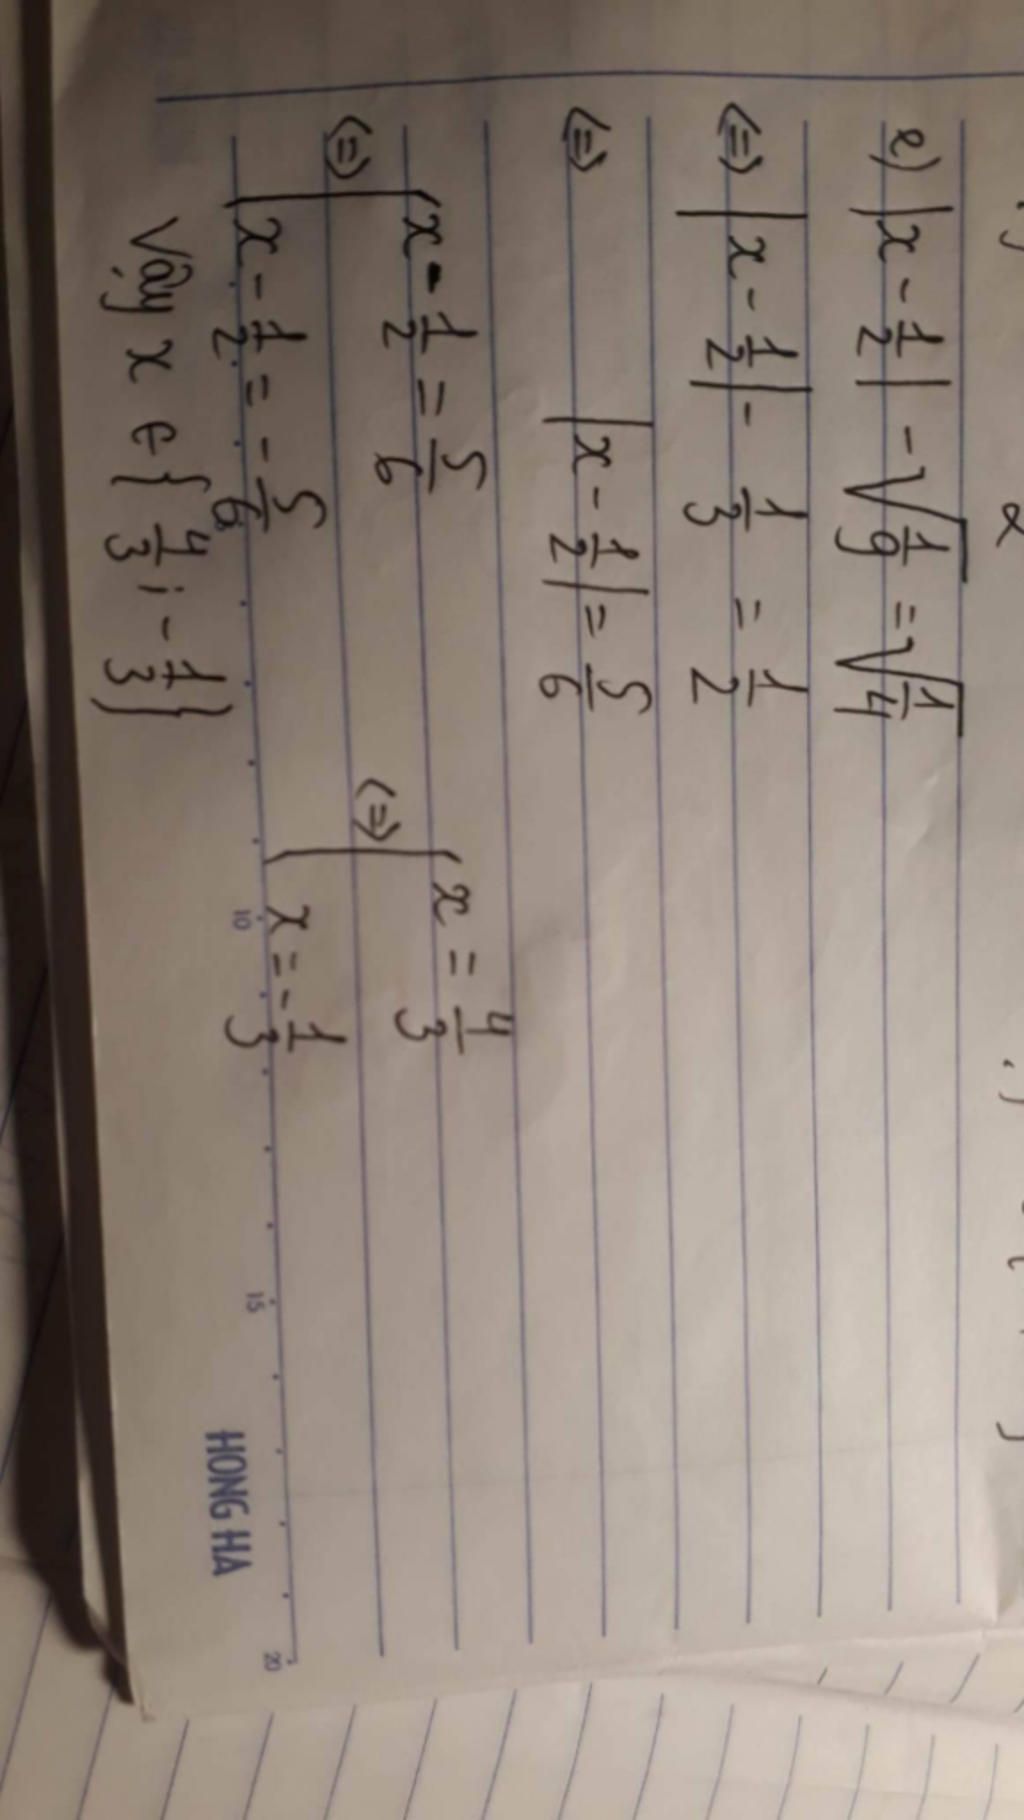 e) |x - 1/2| - √(1/9) = √(1/4)
<=> |x - 1/2| - 1/3 = 1/2
<=> |x - 1/2| = 5/6
<=> [x - 1/2 = 5/6 <=> [x = 4/3
[x - 1/2 = - 5/6 [x = - 1/3
Vậy x ∈ {4/3; - 1/3}
10 15 20
HONG HA